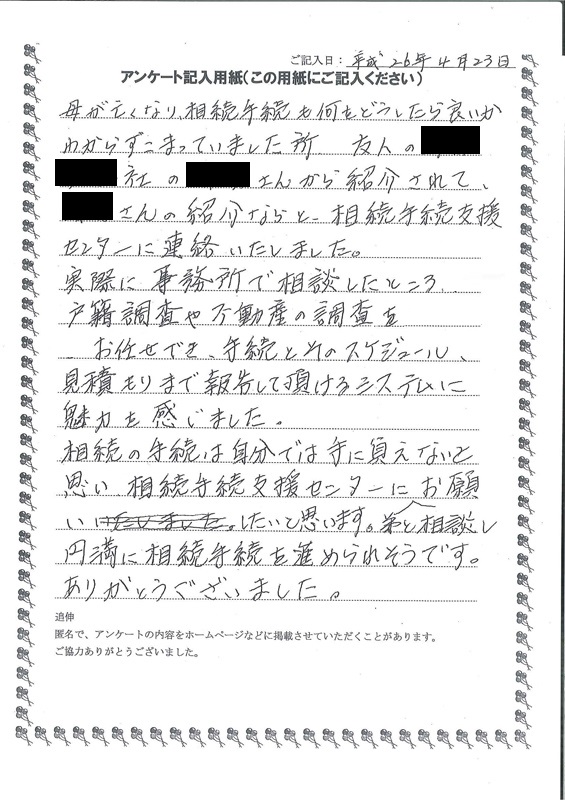 ご記入日：平成26年4月23日
アンケート記入用紙（この用紙にご記入ください）
母が亡くなり、相続手続も何をどうしたら良いか
わからずこまっていました所 友人の
社の さんから紹介されて、
さんの紹介ならと、相続手続支援
センターに連絡いたしました。
実際に事務所で相談したところ、
戸籍調査や不動産の調査を
お任せでき、手続とそのスケジュール、
見積もりまで報告して頂けるシステムに
魅力を感じました。
相続の手続は自分では手に負えないと
思い 相続手続支援センターにお願
いいたしました。したいと思います。弟と相談し
円満に相続手続を進められそうです。
ありがとうございました。
追伸
匿名で、アンケートの内容をホームページなどに掲載させていただくことがあります。
ご協力ありがとうございました。